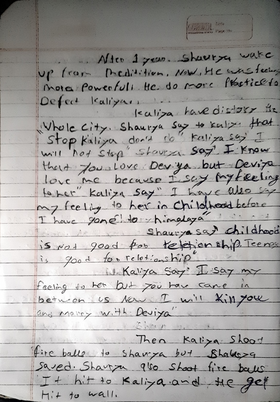 After 1 year. Shaurya wake
up from Meditition. Now. He was feeling
more Powerfull. He do more Practice to
Defect Kaliya.
Kaliya have distory the
Whole City. Shaurya Say to Kaliya that
stop Kaliya don't do" Kaliya Say' I
will not Stop Shaurya Say' I Know
that you Love Deviya but Deviya
Love me because I say my feeling
to her" Kaliya Say" I have also say
my feeling to her in Childhood before
I have gone to himalaya"
Shaurya say' childhood
is not good for reletionship. Teenage
is good for reletionship"
Kaliya Say' I say my
feeling to her but you have came in
between us Now I will kill you
and marry with Deviya"
Then Kaliya Shoot
fire balls to Shaurya but
Saved. Shaurya also Shoot fire balls
It hit to Kaliya and He get
Hit to wall.